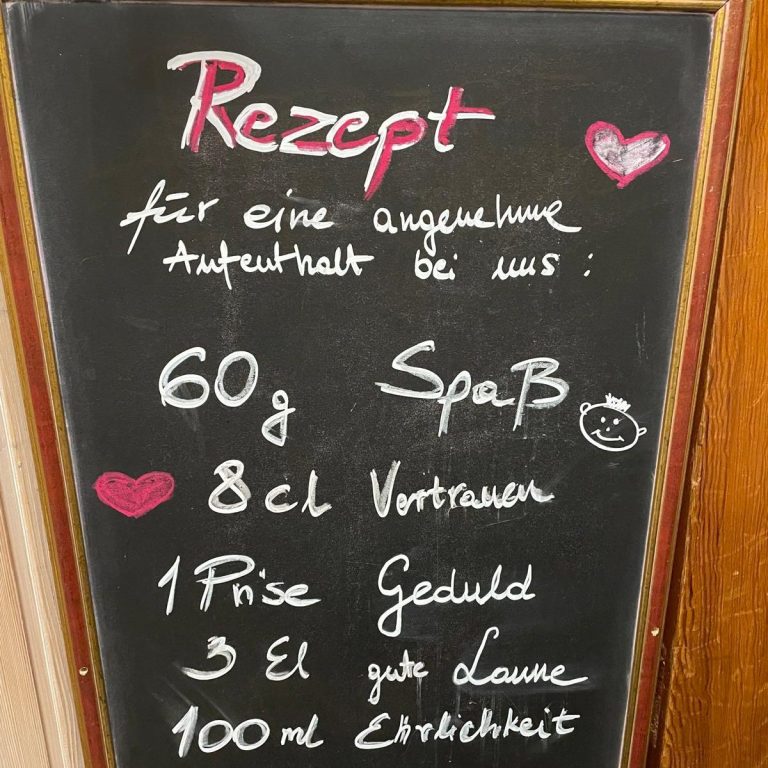 Rezept
für eine angenehme
Aufenthalt bei uns :
60 g Spaß
8 cl Vertrauen
1 Prise Geduld
3 El gute Laune
100 ml Ehrlichkeit